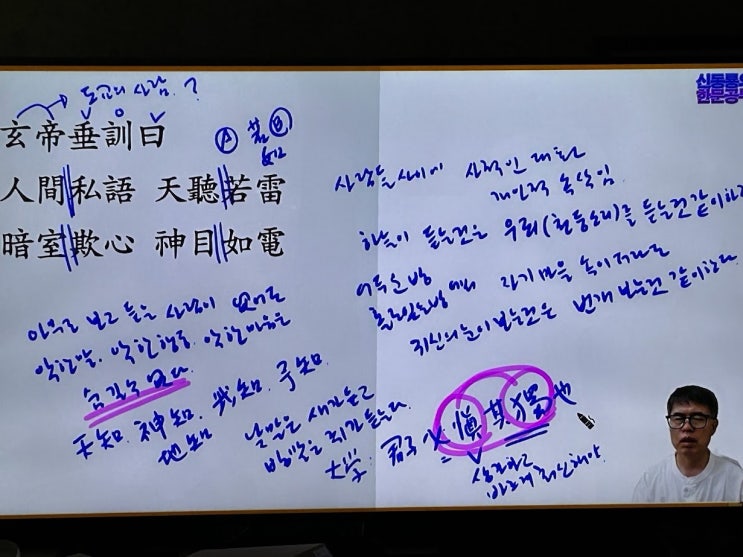 도교의 사람?
玄帝垂訓曰
Ⓐ 若 Ⓑ
如
人間私語 天聽若雷
暗室欺心 神目如電
사람들 사이에 사적인 대화
개인적 속삭임
하늘이 듣는것은 우뢰(천둥소리)를 듣는것같이하고
어두운 방
홀로있는방에서 자기마음 속이더라도
귀신의 눈이 보는것은 번개 보는것 같이하다
아무도 보고 듣는 사람이 없어도
악한말, 악한행동, 악한마음은
숨길수 없다
天知. 神知. 我知. 子知.
地知
낮말은 새가 듣고
밤말은 쥐가 듣는다.
大学:
君子 必 愼其獨也
신동통의
한문공부